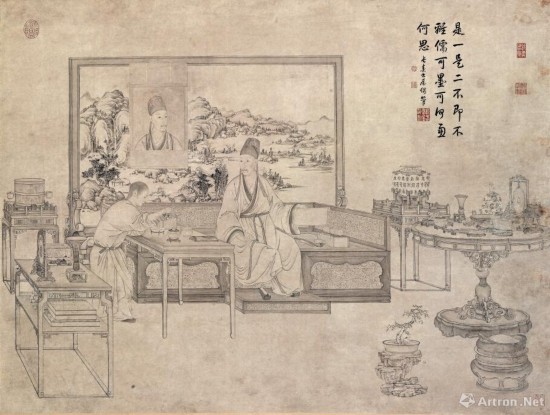 是一是二不即不
離儒可墨可何慮
何思 長春書屋偶筆
Artron.Net